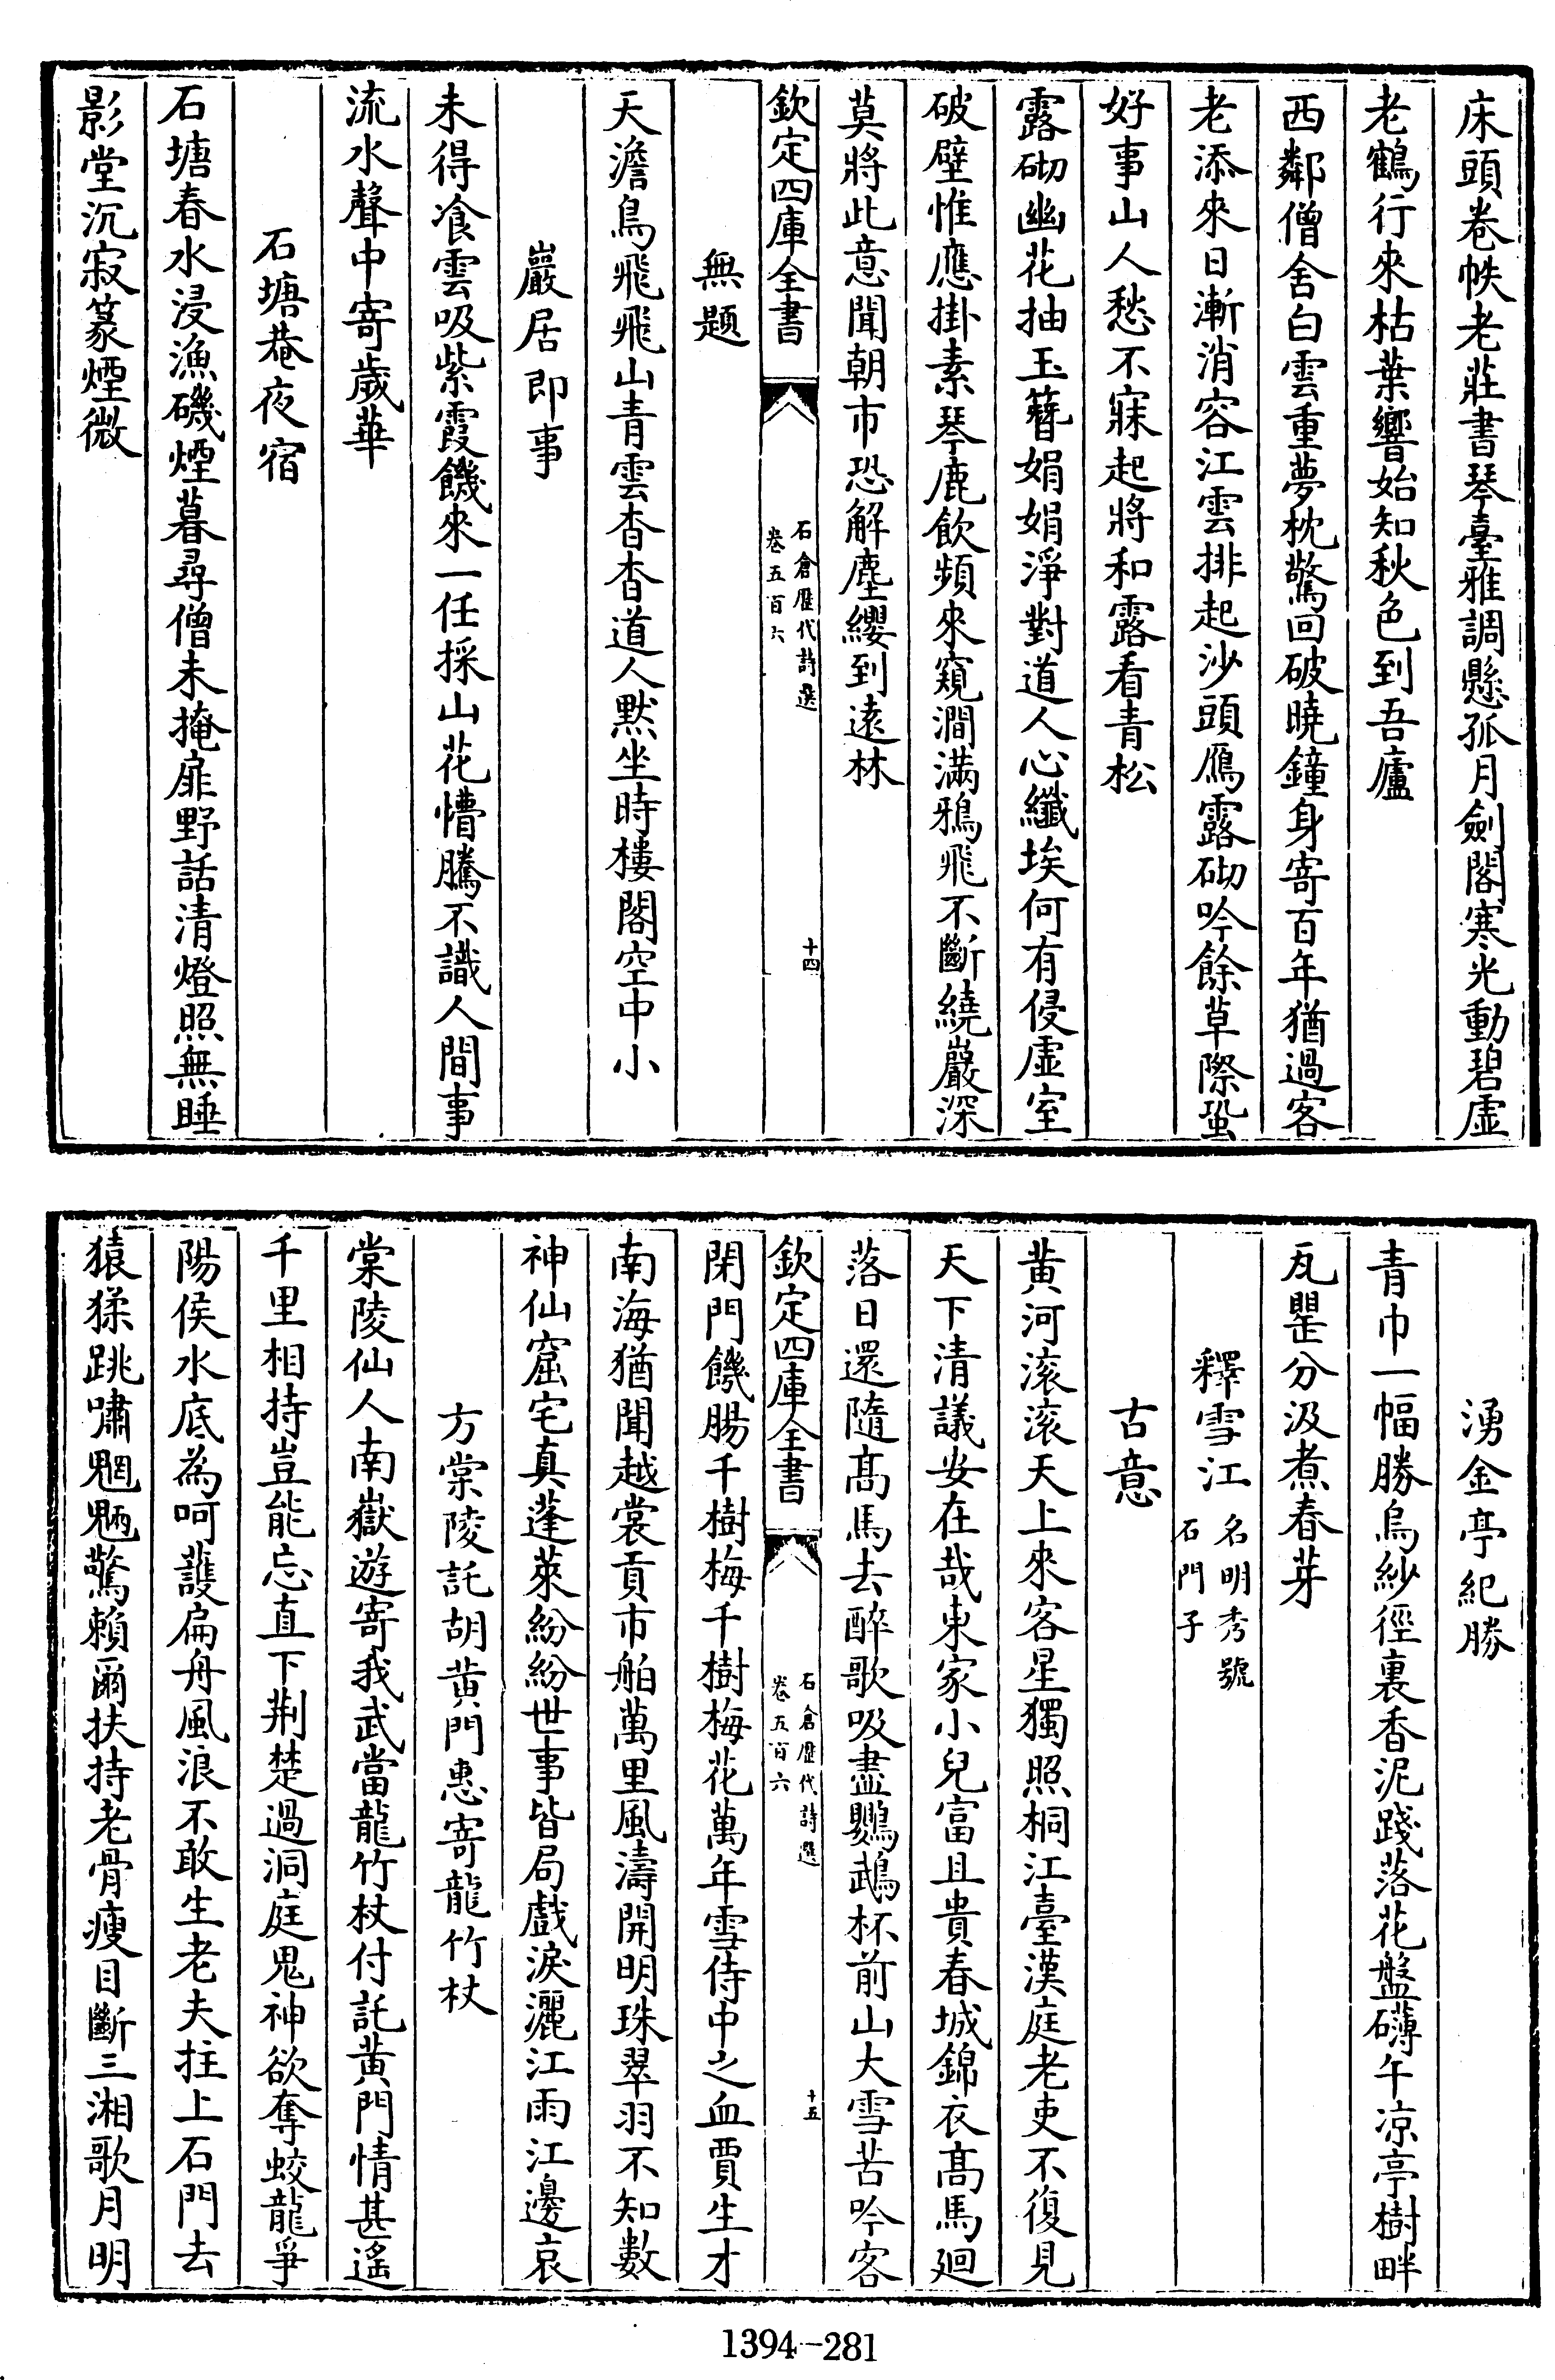 床頭卷帙老莊書琴臺雅調懸孤月劍閣寒光動碧虛
老鶴行來枯葉響始知秋色到吾廬
西鄰僧舍白雲重夢枕驚回破曉鐘身寄百年猶過客
老添來日漸消容江雲排起沙頭鴈露砌吟餘草際蛩
好事山人愁不寐起將和露看青松
露砌幽花抽玉簪娟娟淨對道人心纖埃何有侵虛室
破壁惟應掛素琴鹿飲頻來窺澗滿鴉飛不斷繞巖深
莫將此意聞朝市恐解塵纓到遠林
欽定四庫全書
石倉歷代詩選
卷五百六
十四
無題
天澹鳥飛飛山青雲杳杳道人默坐時樓閣空中小
巖居即事
未得飡雲吸紫霞饑來一任採山花懵騰不識人間事
流水聲中寄歲華
石塘菴夜宿
石塘春水浸漁磯煙暮尋僧未掩扉野話清燈照無睡
影堂沉寂篆煙微
湧金亭紀勝
青巾一幅勝烏紗徑裏香泥踐落花盤礴午凉亭樹畔
瓦罌分汲煮春芽
釋雪江
名明秀號
石門子
古意
黄河滚滚天上來客星獨照桐江臺漢庭老吏不復見
天下清議安在哉東家小兒富且貴春城錦衣髙馬廻
落日還隨髙馬去醉歌吸盡鸚鵡杯前山大雪苦吟客
欽定四庫全書
石倉歷代詩選
卷五百六
十五
閉門饑腸千樹梅千樹梅花萬年雪侍中之血賈生才
南海猶聞越裳貢市舶萬里風濤開明珠翠羽不知數
神仙窟宅真蓬萊紛紛世事皆局戲淚灑江雨江邊哀
方棠陵託胡黄門惠寄龍竹杖
棠陵仙人南嶽遊寄我武當龍竹杖付託黄門情甚遙
千里相持豈能忘直下荆楚過洞庭鬼神欲奪蛟龍爭
陽侯水底為呵護扁舟風浪不敢生老夫拄上石門去
猿猱跳嘯魍魎驚賴爾扶持老骨瘦目斷三湘歌月明
1394-281